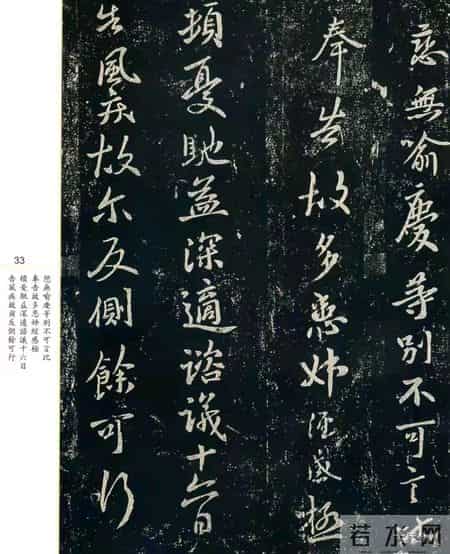 慰無喻慶等別不可言比
奉告故多患姉經感極
頓憂馳益深適諮議十六日
告風疾故尔反側餘可行
33
慰無喻慶等別不可言比
奉告故多患姉經感極
頓憂馳益深適諮議十六日
告風疾故爾反側餘可行
若水网